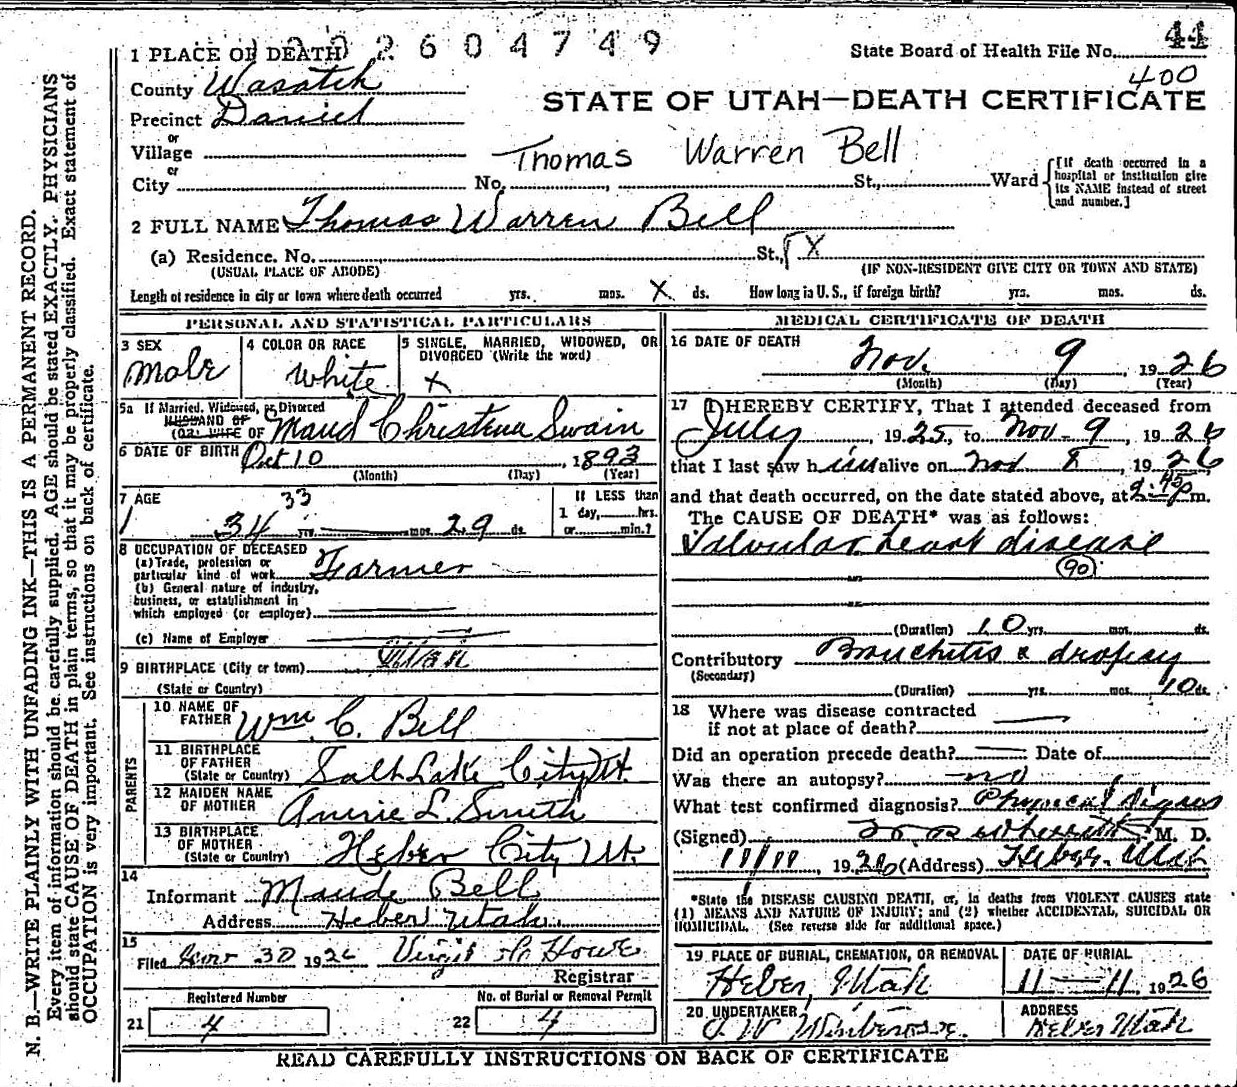 2604749
44
1 PLACE OF DEATH
State Board of Health File No.
400
County Wasatch
STATE OF UTAH—DEATH CERTIFICATE
Precinct Daniel
or
Village
Thomas Warren Bell
or
City No. , St., Ward
[If death occurred in a hospital or institution give its NAME instead of street and number.]
2 FULL NAME Thomas Warren Bell
(a) Residence. No. St., X
(USUAL PLACE OF ABODE) (IF NON-RESIDENT GIVE CITY OR TOWN AND STATE)
Length of residence in city or town where death occurred yrs. mos. X ds. How long in U. S., if foreign birth? yrs. mos. ds.
PERSONAL AND STATISTICAL PARTICULARS
3 SEX
Male
4 COLOR OR RACE
White
5 SINGLE, MARRIED, WIDOWED, OR DIVORCED (Write the word)
X
5a If Married, Widowed, or Divorced
HUSBAND OF
(OR) WIFE OF Maud Christena Swain
6 DATE OF BIRTH Oct 10, 1893
(Month) (Day) (Year)
7 AGE 33
34 yrs. mos. 29 ds.
If LESS than
1 day, hrs.
or min.?
8 OCCUPATION OF DECEASED
(a) Trade, profession or
particular kind of work Farmer
(b) General nature of industry,
business, or establishment in
which employed (or employer)
(c) Name of Employer
9 BIRTHPLACE (City or town)
(State or Country)
PARENTS
10 NAME OF
FATHER Wm. C. Bell
11 BIRTHPLACE
OF FATHER
(State or Country) Salt Lake City Ut.
12 MAIDEN NAME
OF MOTHER Annie L. Smith
13 BIRTHPLACE
OF MOTHER
(State or Country) Heber City Ut.
14
Informant Maude Bell
Address Heber Utah
15
Filed 30 1926 Howe
Registrar
Registered Number
21 4
No. of Burial or Removal Permit
22 4
MEDICAL CERTIFICATE OF DEATH
16 DATE OF DEATH
Nov. 9 1926
(Month) (Day) (Year)
17 I HEREBY CERTIFY, That I attended deceased from
July, 1925, to Nov-9, 1926
that I last saw him alive on Nov 8, 1926
and that death occurred, on the date stated above, at 2:45 p m.
The CAUSE OF DEATH* was as follows:
Valvular heart disease
90
(Duration) 10 yrs. mos. ds.
Contributory Bronchitis & dropsy
(Secondary)
(Duration) yrs. mos. 10 ds.
18 Where was disease contracted
if not at place of death?
Did an operation precede death? Date of
Was there an autopsy? no
What test confirmed diagnosis? Physical signs
(Signed) M. D.
1926 (Address) Heber, Utah
*State the DISEASE CAUSING DEATH, or, in deaths from VIOLENT CAUSES state
(1) MEANS AND NATURE OF INJURY; and (2) whether ACCIDENTAL, SUICIDAL OR
HOMICIDAL. (See reverse side for additional space.)
19 PLACE OF BURIAL, CREMATION, OR REMOVAL
Heber, Utah
DATE OF BURIAL
11—11, 1926
20 UNDERTAKER
J. W. Winterose.
ADDRESS
Heber Utah
READ CAREFULLY INSTRUCTIONS ON BACK OF CERTIFICATE
N. B.—WRITE PLAINLY WITH UNFADING INK—THIS IS A PERMANENT RECORD.
Every item of information should be carefully supplied. AGE should be stated EXACTLY. PHYSICIANS
should state CAUSE OF DEATH in plain terms, so that it may be properly classified. Exact statement of
OCCUPATION is very important. See instructions on back of certificate.